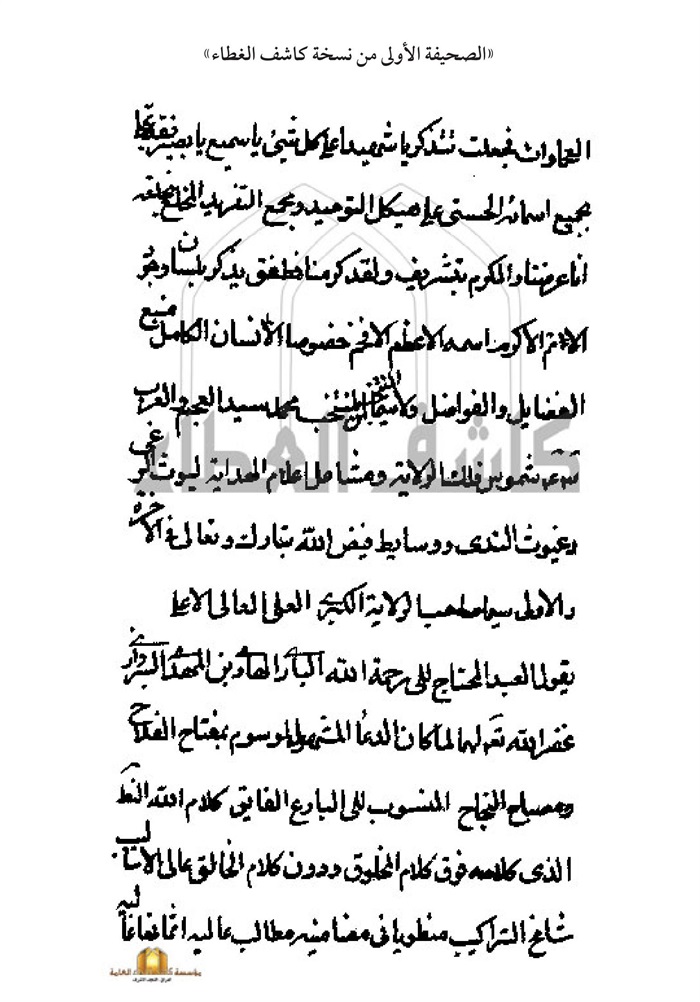 «الصحيفة الأولى من نسخة كاشف الغطاء»
فجعلت تتذكر يا شهيدا على كل شيئ يا سميع يا بصير
بجميع اسمائه الحسنى على هيكل التوحيد ومجمع التفريد
انا عرضنا والمكرم بتشريف ولقد كرمنا فطفق يذكر بلسان
الاكرم اسمه الاعظم الافخم خصوصا الأنسان الكامل منبع
الفضايل والفواضل ولا سيما المنتخب محمد سيد العجم والعرب
شموس فلك الولاية ومشاعل اعلام الهداية ليوث الوغى
وغيوث الندى ووسايط فيض الله تبارك وتعالى في الآخرة
والاولى سيما صاحب الولاية الكبرى العلي العالي الاعلى
يقول العبد المحتاج الى رحمة الله الباري الهادي بن المهدي السبزواري
غفر الله لهما لما كان الدعا المشهور الموسوم بمفتاح الفلاح
ومصباح النجاح المنسوب الى البارع الفايق كلام الله
الذى كلامه فوق كلام المخلوق ودون كلام الخالق عالى الاساليب
شامخ التراكيب منطويا في مضامينه مطالب عاليه
كاشف الغطاء
مؤسسة كاشف الغطاء العامة
العراق - النجف الاشرف